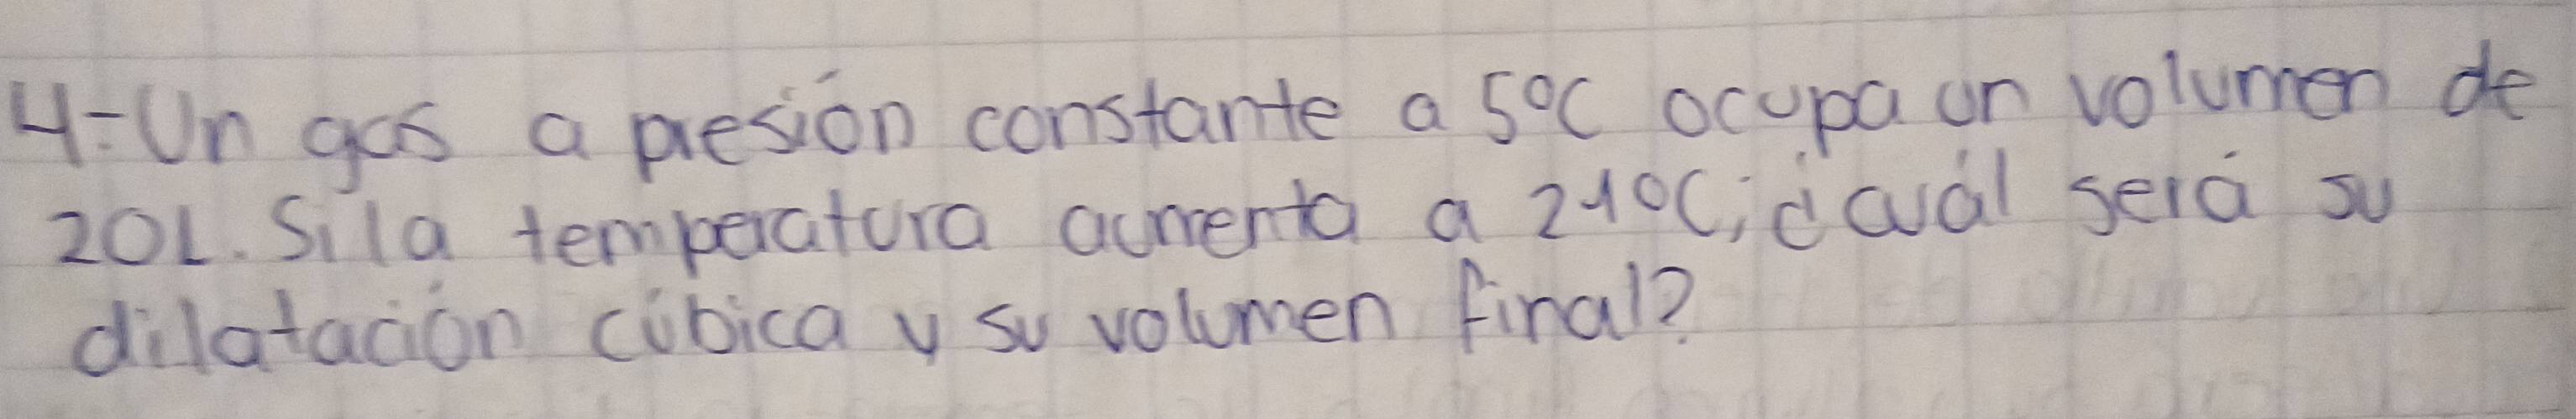 4-Un gas a presión constante a 5°C ocupa un volumen de
20L. Si la temperatura aumenta a 21°C; ¿cuál será su
dilatación cúbica y su volumen final?